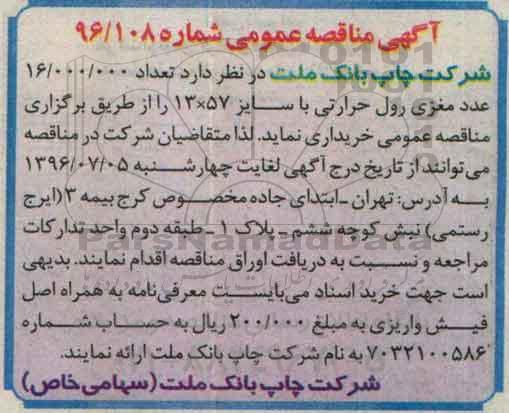 آگهی مناقصه عمومی شماره ۹۶/۱۰۸
شرکت چاپ بانک ملت در نظر دارد تعداد ۱۶/۰۰۰/۰۰۰
عدد مغزی رول حرارتی با سایز ۵۷×۱۳ را از طریق برگزاری
مناقصه عمومی خریداری نماید. لذا متقاضیان شرکت در مناقصه
می‌توانند از تاریخ درج آگهی لغایت چهارشنبه ۱۳۹۶/۰۷/۰۵
به آدرس: تهران ـ ابتدای جاده مخصوص کرج بیمه ۳ (ایرج
رستمی) نبش کوچه ششم ـ پلاک ۱ ـ طبقه دوم واحد تدارکات
مراجعه و نسبت به دریافت اوراق مناقصه اقدام نمایند. بدیهی
است جهت خرید اسناد می‌بایست معرفی‌نامه به همراه اصل
فیش واریزی به مبلغ ۲۰۰/۰۰۰ ریال به حساب شماره
۷۰۳۲۱۰۰۵۸۶ به نام شرکت چاپ بانک ملت ارائه نمایند.
شرکت چاپ بانک ملت (سهامی خاص)
ParsNamadData